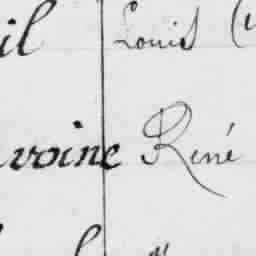 il Louis (
voine René